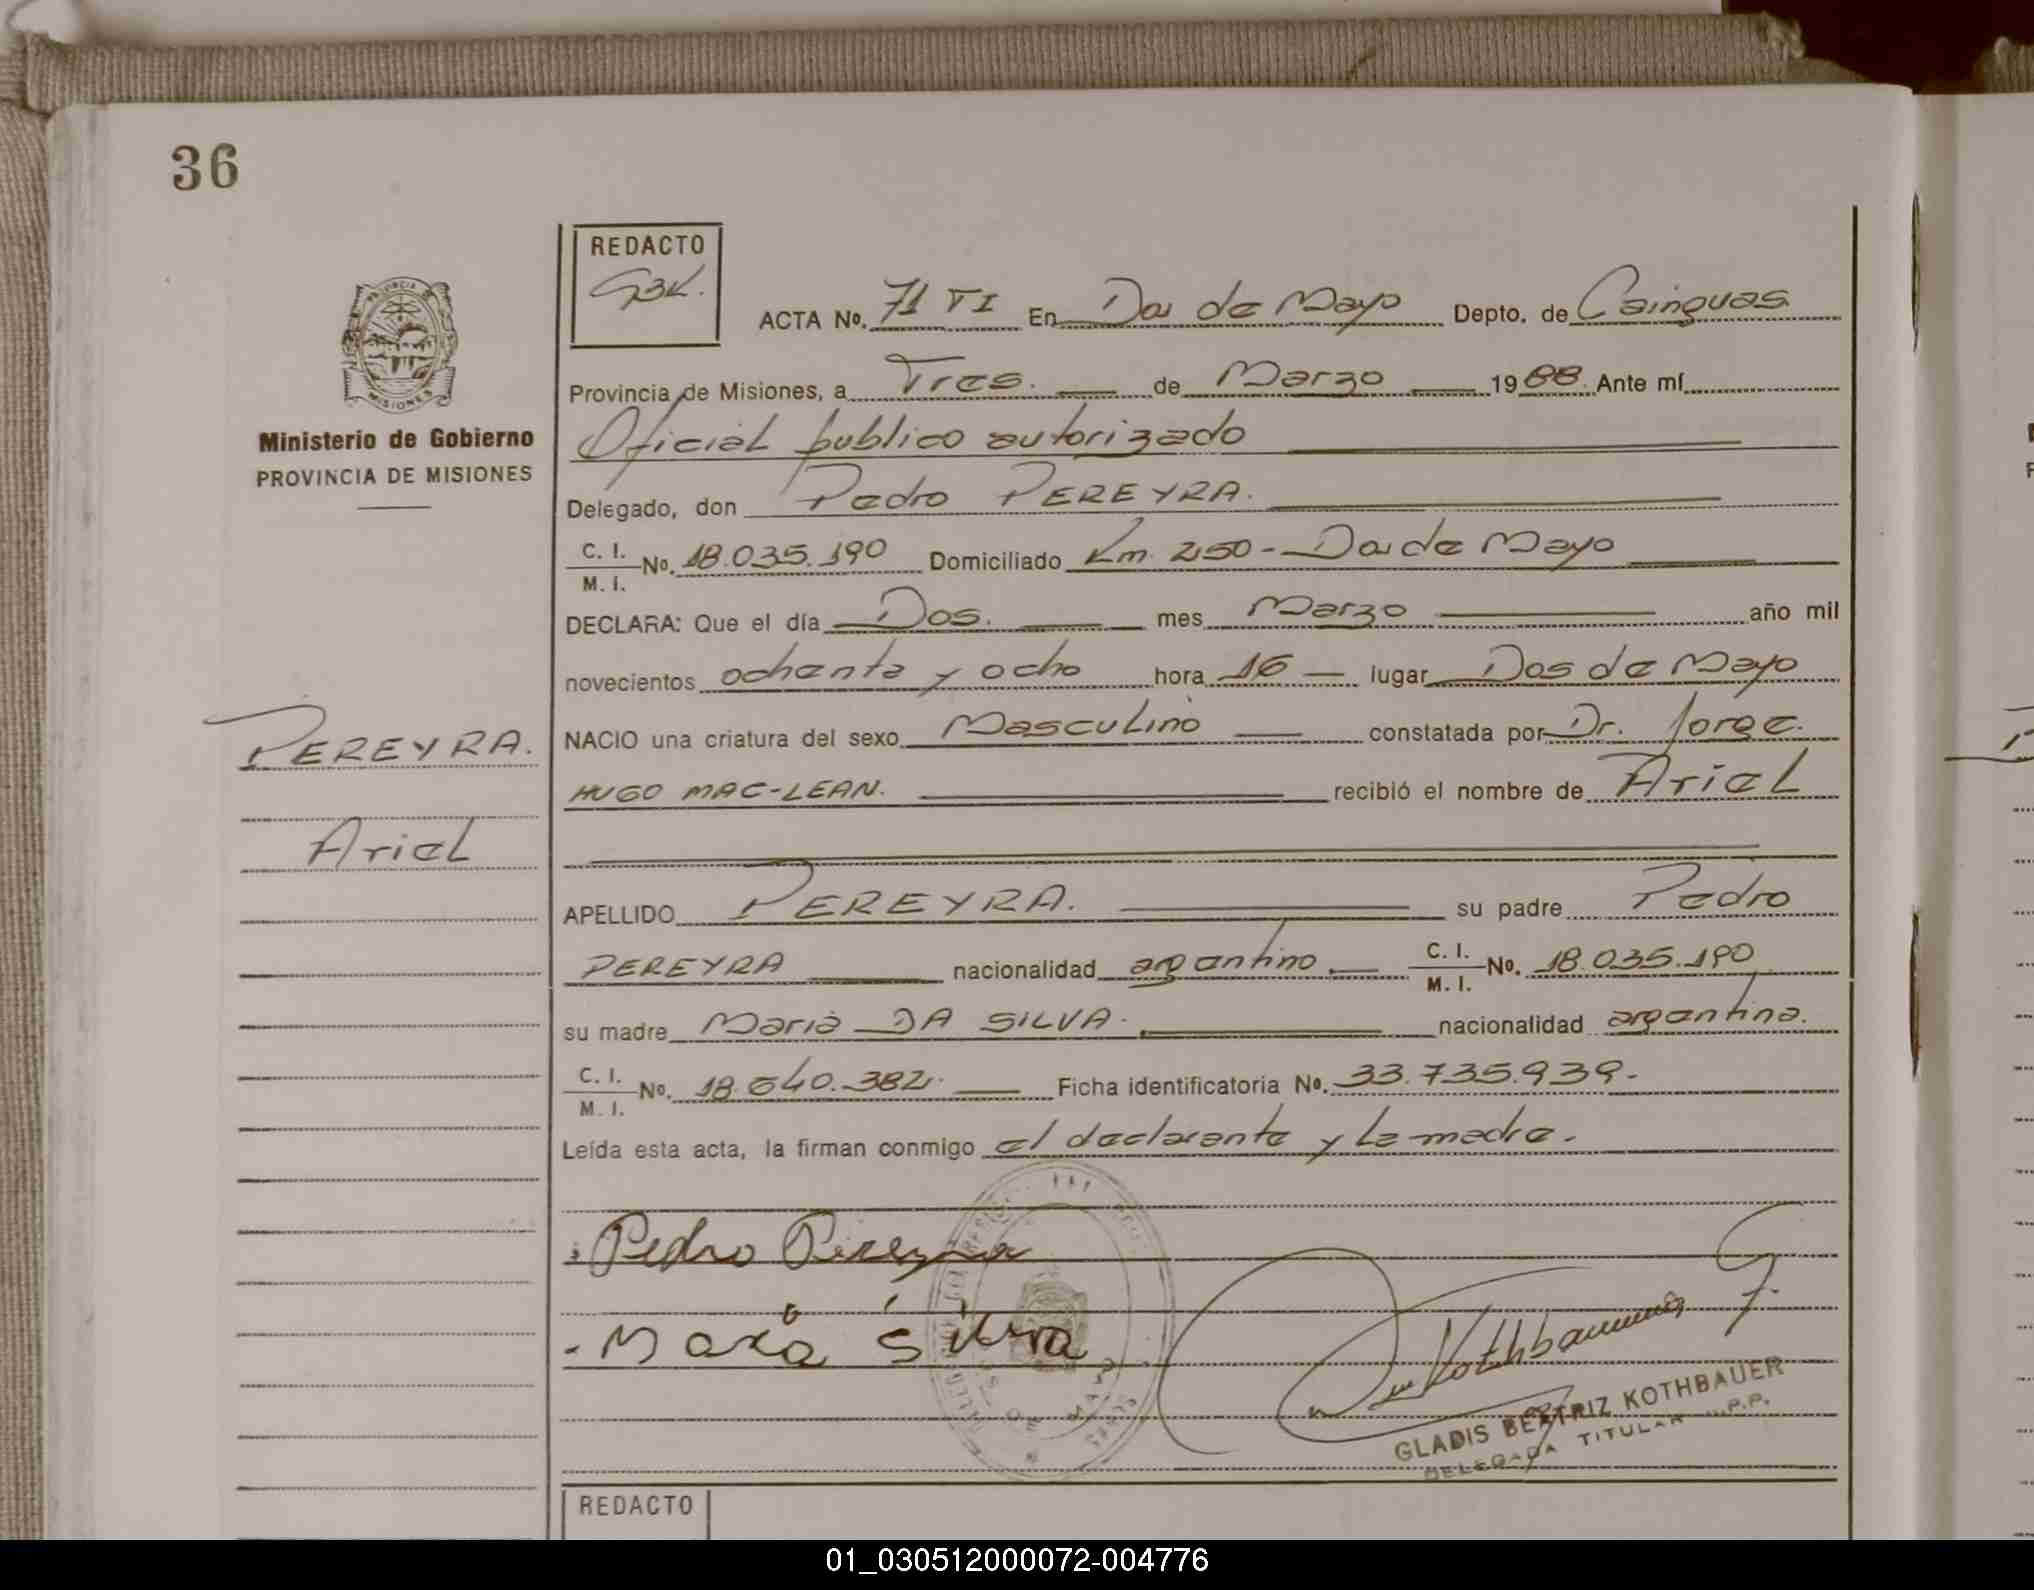 36
REDACTO
GBK.
ACTA No. 71 TI En Dos de Mayo Depto. de Cainguas
Provincia de Misiones, a Tres. de Marzo 1988. Ante mí
Oficial publico autorizado
Ministerio de Gobierno
PROVINCIA DE MISIONES
Delegado, don Pedro PEREYRA.
C. I.
M. I. No. 18.035.190 Domiciliado Km. 250 - Dos de Mayo
DECLARA: Que el día Dos. mes Marzo año mil
novecientos ochenta y ocho hora 16 lugar Dos de Mayo
NACIO una criatura del sexo Masculino constatada por Dr. Jorge.
PEREYRA.
HUGO MAC-LEAN. recibió el nombre de Ariel
Ariel
APELLIDO PEREYRA. su padre Pedro
PEREYRA nacionalidad argentino. C. I.
M. I. No. 18.035.190
su madre Maria DA SILVA. nacionalidad argentina.
C. I.
M. I. No. 18.640.382. Ficha identificatoria No. 33.735.939.-
Leída esta acta, la firman conmigo el declarante y la madre.
Pedro Pereyra
Silva
GLADIS BEATRIZ KOTHBAUER
DELEGADA TITULAR
REDACTO
01_030512000072-004776